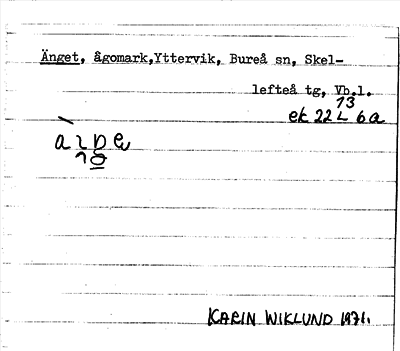 Änget, ägomark, Yttervik, Bureå sn, Skel-
lefteå tg, Vb.l.
13
ek 22 L 6a
KARIN WIKLUND 1971.